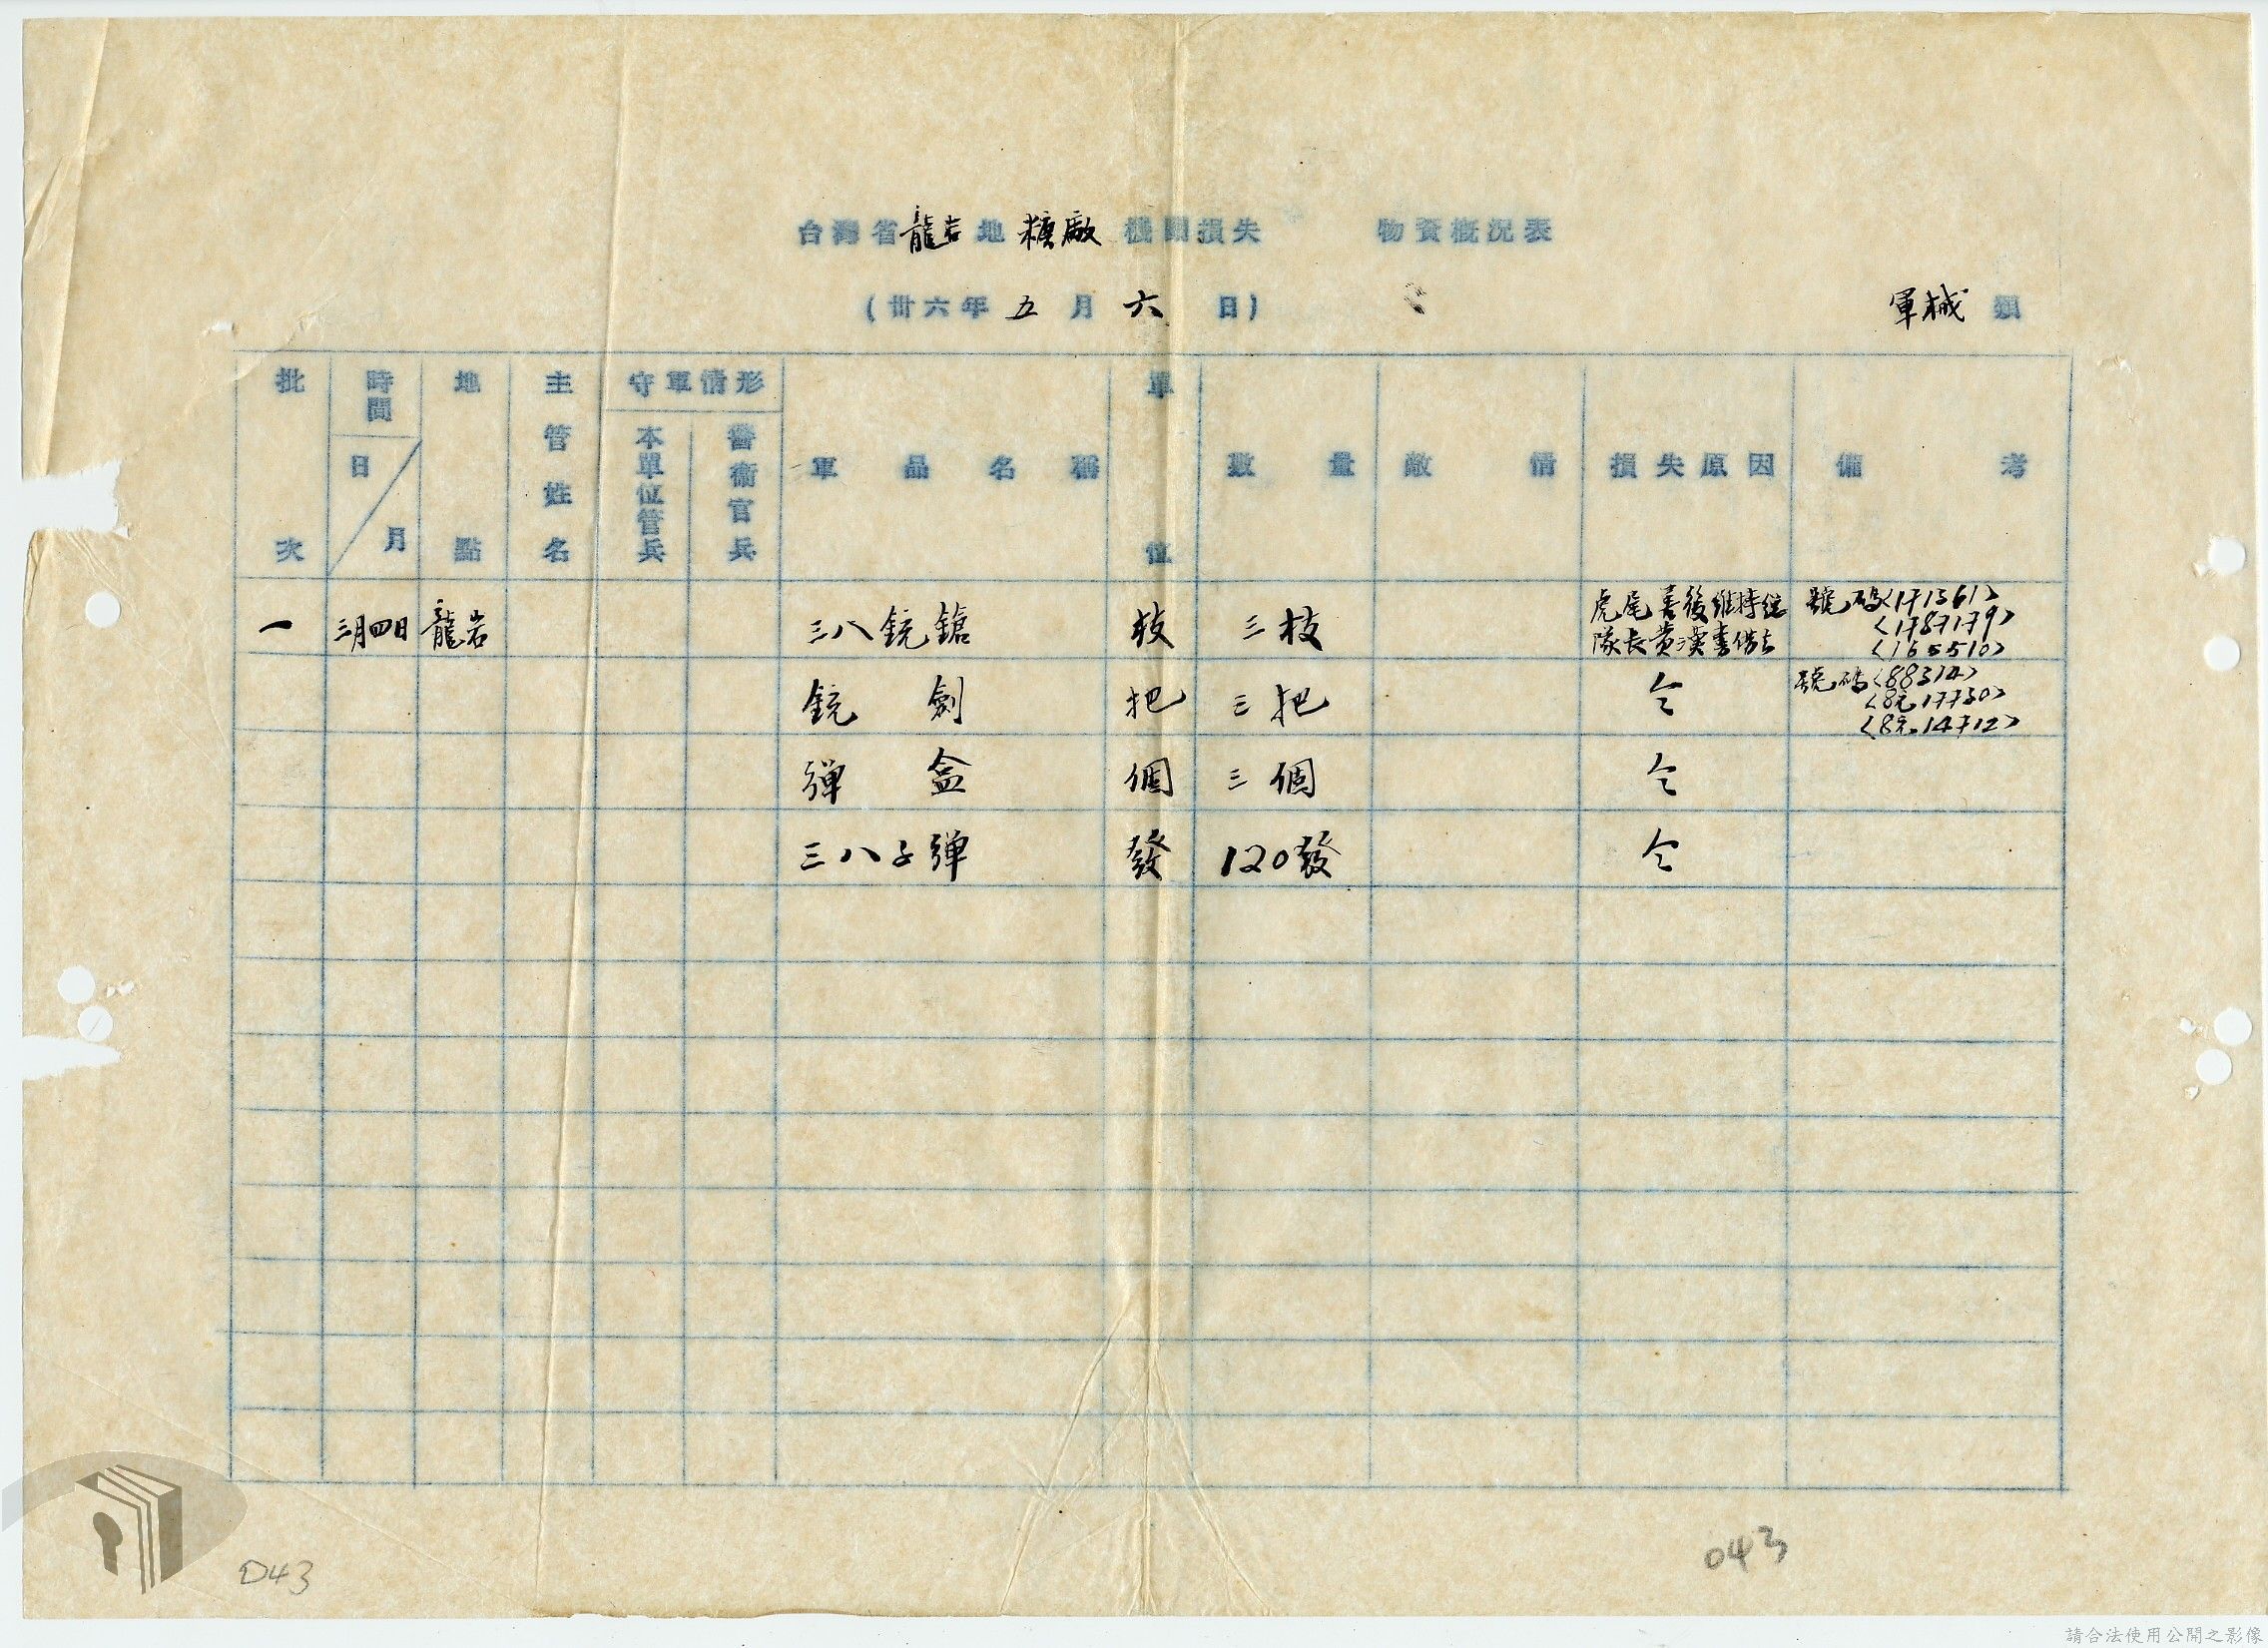 台灣省龍岩地糖廠機關損失 物資概況表
(卅六年五月六日)
軍械類
批次 時間 日/月 地點 主管姓名 守軍情形 本單位管兵 警衛官兵 軍品名稱 單位 數量 敵情 損失原因 備考
一 三月四日 龍岩 三八銃鎗 枝 三枝 虎尾善後維持總隊長黃漢書借去 號碼<171561>
<1787179>
<165510>
銃劍 把 三把 仝 號碼<88314>
<8元17730>
<8元.14712>
彈盒 個 三個 仝
三八子彈 發 120發 仝
D43
043
請合法使用公開之影像